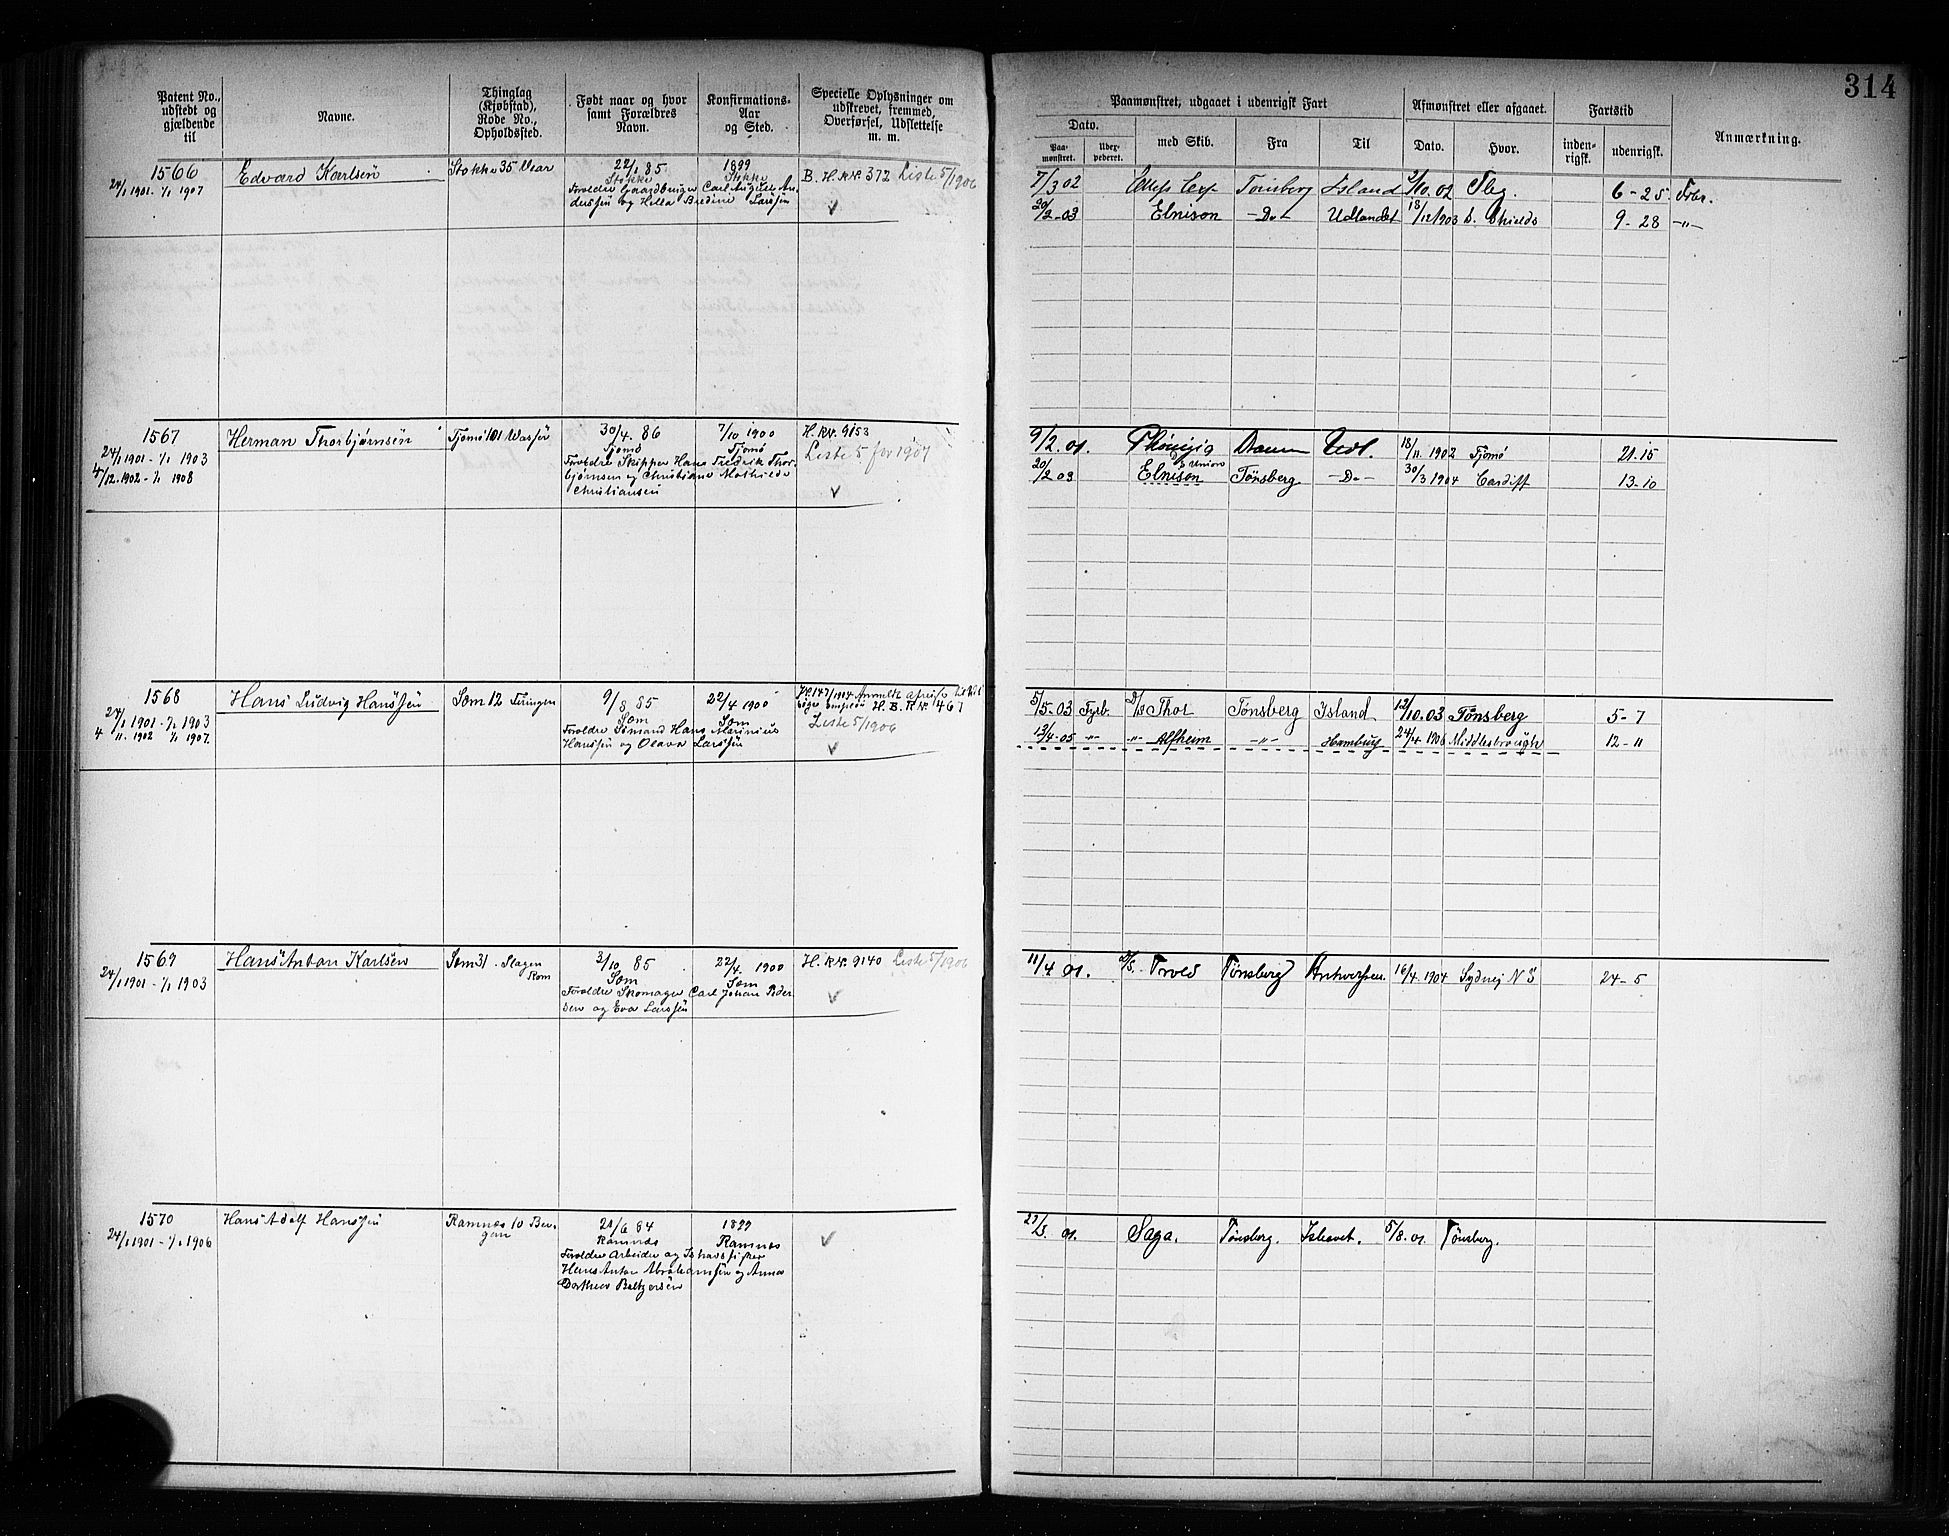 314
Patent No., udstedt og gjældende til
Navne.
Thinglag (Kjøbstad), Rode No., Opholdssted.
Født naar og hvor samt Forældres Navn.
Konfirmations-Aar og Sted.
Specielle Oplysninger om udskrevet, fremmed, Overførsel, Udslettelse m. m.
Paamønstret, udgaaet i udenrigsk Fart
Afmønstret eller afgaaet.
Fartstid
Anmærkning.
Dato.
Paa-mønstret.
med Skib.
Fra
Til
Dato.
Hvor.
inden-rigsk.
udenrigsk.
1566
24/1 1901 - 1/1 1907
Edvard Karlsen
Stokke 35 Vear
22/1 85
Stokke
1899
Stokke
Forældre Gaardbruger Carl August An-
derssen og Helle Bredine Larssen
B. H. RN. 372 Liste 5/1906
7/3 02
Tønsberg Island
02 Tbg.
6 - 25 Forbr.
20/2 - 03 Elnison - Do - Udlandet 18/12 1903 S. Shields 9 - 28 - " -
1567
24/1 1901 - 1/1 1903
4/12. 1902 - 1/1 1908
Herman Thorbjørnsen
Tjømø 101
30/4. 86
Tjømø
7/10 1900
Tjømø
Forældre Skipper Hans Fredrik Thor-
bjørnsen og Christiane Mathilde
Christiansen
H. RN. 9153
Liste 5 for 1907
9/2. 01.
Dramm Udl. 18/11 1902 Tjømø 21 - 15
20/2 03 Elnison Tønsberg - Do - 30/3 1904 Cardiff 13 - 10
1568
24/1 1901 - 1/1 1903
4/11. 1902 1/1 1907.
Hans Ludvig Hanssen
Sem 12
9/8. 85
Sem
22/4 1900
Sem
Forældre Sømand Hans Marinius
Hanssen og Olava Larssen
H. B. R. N. 467
Liste 5/1906
5/5 - 03 Fyrb. Thor Tønsberg Island 12/10. 03 Tønsberg 5 - 7
13/4 - 05 - " - " Alfheim - " - Hamburg 24/4 1906 Middlesbrough 12 - 11
1569
24/1 1901 - 1/1 1903
Hans Anton Karlsen
Sem 31 - Slagen
Rom
3/10 85
Sem
22/4. 1900
Sem
Forældre Skomager Carl Johan Peder
sen og Eva Larssen
H. RN. 9140 Liste 5/1906
11/4 01. Tønsberg Antwerpen 16/4. 1904 Sydney N S 24 - 5
1570
24/1 1901 - 1/1 1906
Hans Adolf Hanssen
Ramnæs 10 Ber-
gan
21/6 84
Ramnæs
1899
Ramnæs
Forældre Arbeider og Ishavsfisker
Hans Anton Abrahamssen og Anne
Dorthea Baltzersen
01. Saga. Tønsberg. Ishavet. 5/8. 01. Tønsberg.